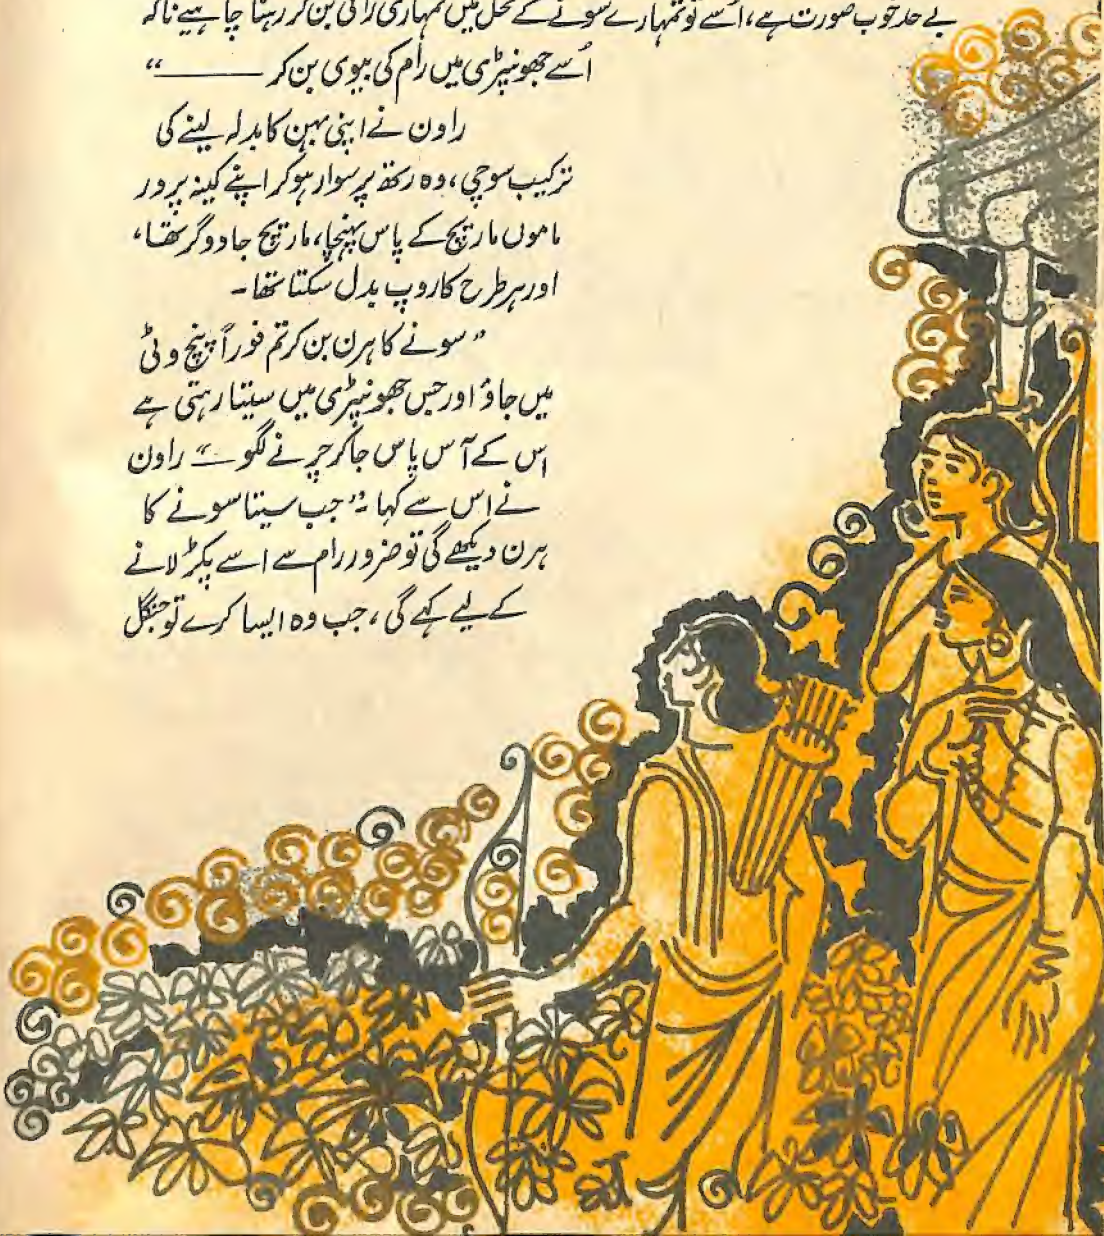 بے حد خوب صورت ہے، اُسے تو تمہارے سونے کے محل میں تمہاری رانی بن کر رہنا چاہیے نا کہ
اُسے جھونپڑی میں رام کی بیوی بن کر ———“
راون نے اپنی بہن کا بدلہ لینے کی
ترکیب سوچی، وہ رتھ پر سوار ہو کر اپنے کینہ پرور
ماموں ماریچ کے پاس پہنچا، ماریچ جادوگر تھا،
اور ہر طرح کا روپ بدل سکتا تھا۔
”سونے کا ہرن بن کر تم فوراً پنچ وٹی
میں جاؤ اور جس جھونپڑی میں سیتا رہتی ہے
اس کے آس پاس جا کر چرنے لگو۔“ راون
نے اس سے کہا۔ ”جب سیتا سونے کا
ہرن دیکھے گی تو ضرور رام سے اسے پکڑ لانے
کے لیے کہے گی، جب وہ ایسا کرے تو جنگل